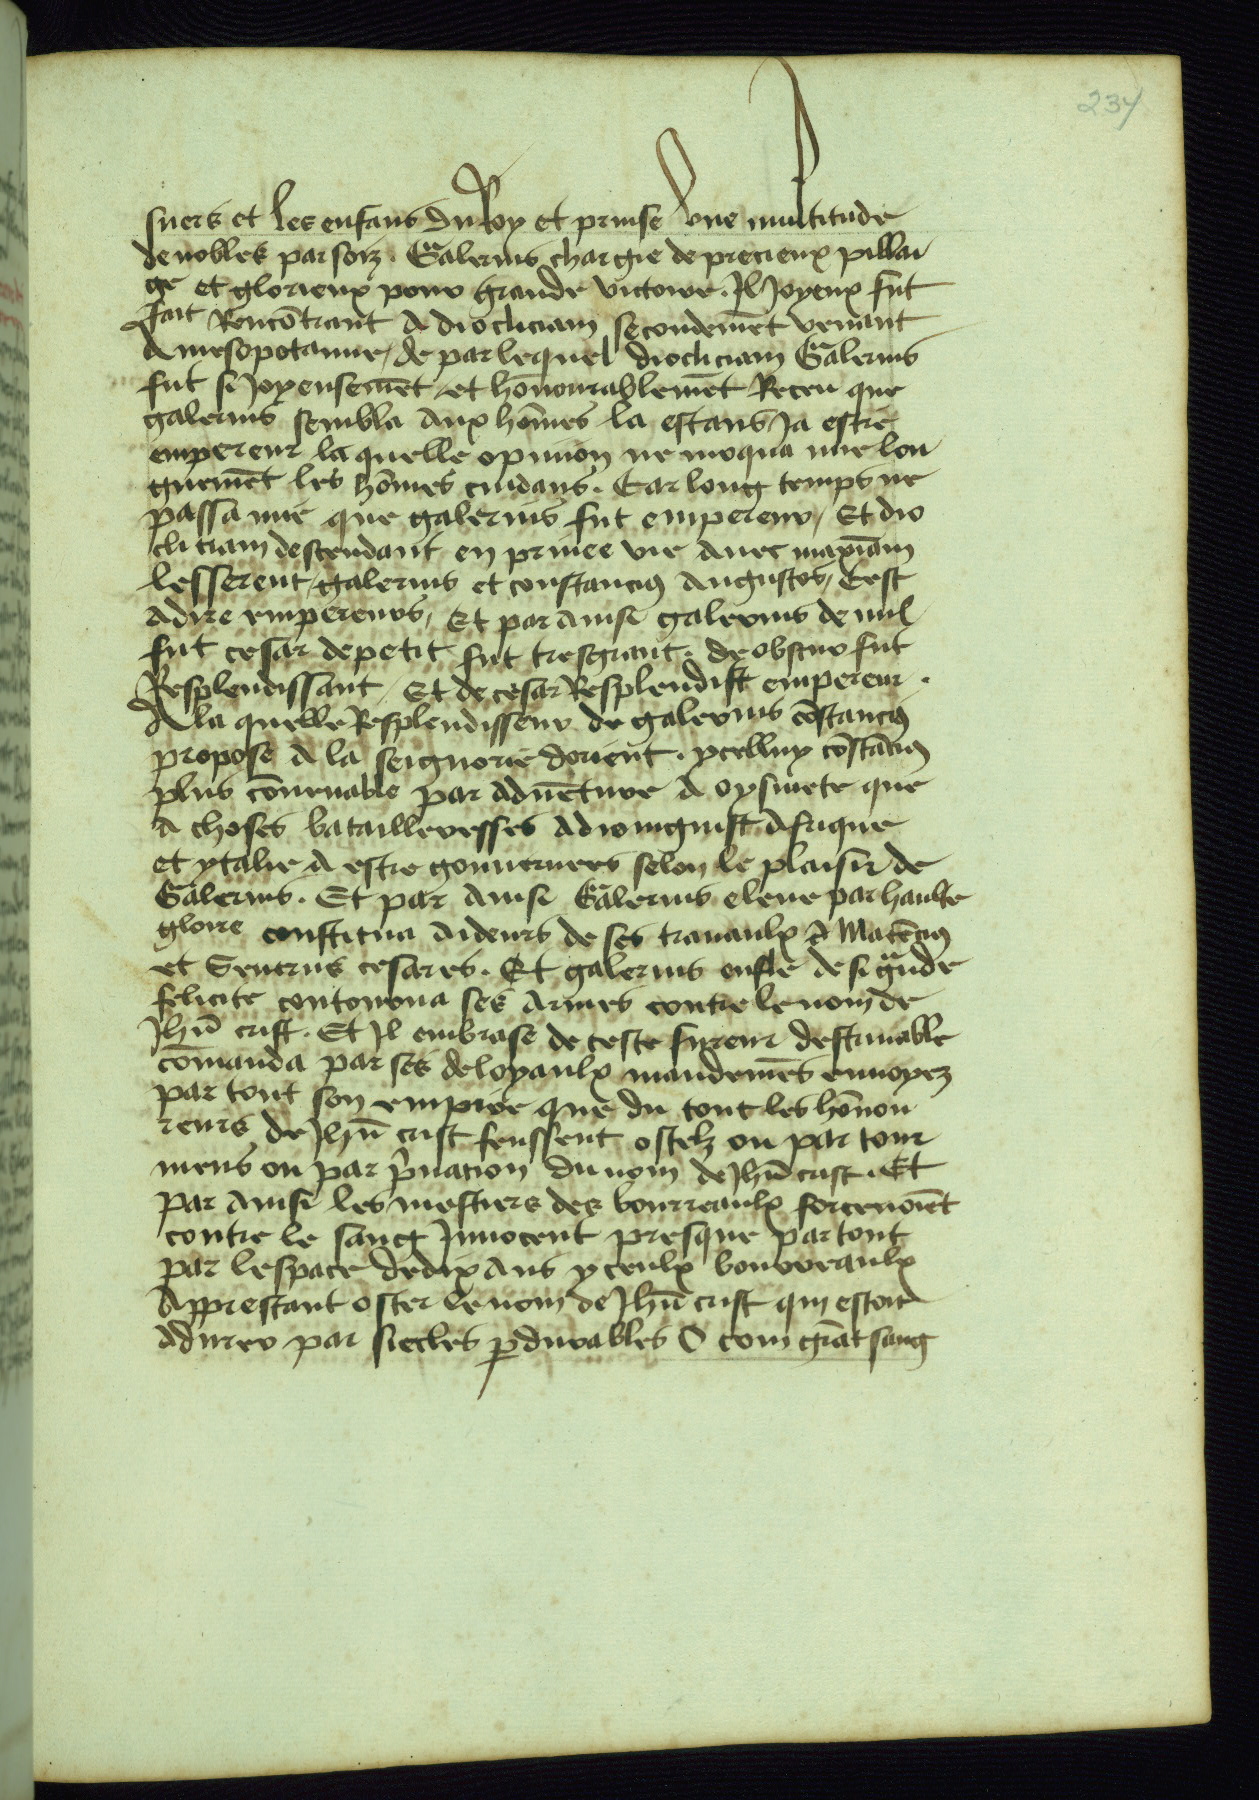 234
suers et les enfans du Roy et prinse une multitude
de nobles par soiz. Galerius chargie de precieux pillai
ge et glorieux pour grande victoire. Il Joyeux fut
fait Rencõtrant A diocliciam secondemẽt venant
A mesopotamie, de par lequel diocliciam Galerius
fut si Joyeusemẽt et hõnourablemẽt Receu que
galerius sembla Aux hõmes la estans Ja estre
empereur la quelle opinion ne moqua mie lon
guemẽt les hõmes cuidans. Car long temps ne
passa mie que galerius fut empereur, Et dio
cliciam descendant en privee vie Avec maximiam
lesserent galerius et constancius Augustos, Cest
Adire empereurs, Et par Ainsi galerius de nul
fut cesar de petit fut tresgrant. de obscur fut
Resplendissant, Et de cesar Resplendist empereur.
A la quelle Resplendisseur de galerius cõstancius
propose A la seignorie dorient. ycelluy cõstãcius
plus cõvenable par Advẽture A oysivete que
A choses bataillereses Adioingnist Afrique
et ytalie A estre gouvernees selon le plaisir de
Galerius. Et par Ainsi Galerius eleve par haulte
gloire constitua Aideurs de ses travaulx A Maxẽcius
et Severus cesares. Et galerius enfle de si grãde
felicite contourna ses Armes contre le nom de
Jhũ crist. Et Il embrase de ceste fureur destinable
cõmanda par ses deloyaulx mandemẽs envoyez
par tout son empire que du tout les hõnou
reurs de Jhũ crist feussent ostez ou par tour
mens ou par pⁱvacion du nom de Jhũ crist. Et
par Ainsi les mestiers des bourreaulx forcenoiẽt
contre le sang Innocent presque par tout
par lespace de dix Ans yceulx bourreaulx
Apprestant oster le nom de Jhũ crist qui estoit
A durer par siecles pdurables O com grãt sang